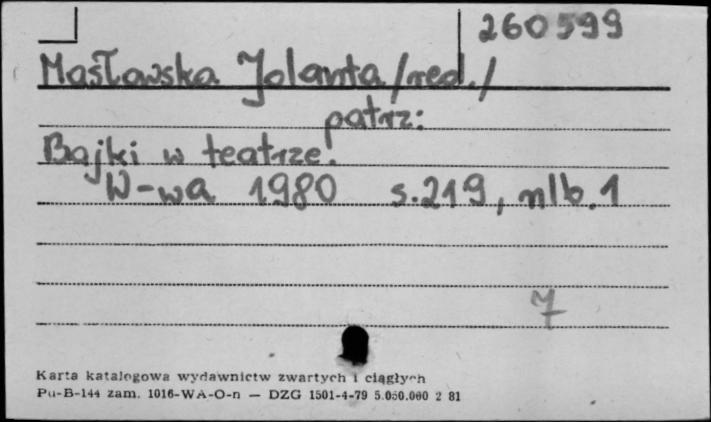 260599
Masłowska Jolanta /red./
patrz:
Bajki w teatrze.
W-wa 1980 s.219, nlb.1
7
Karta katalogowa wydawnictw zwartych i ciągłych
Pu-B-144 zam. 1016-WA-O-n — DZG 1501-4-79 5.050.000 2 81